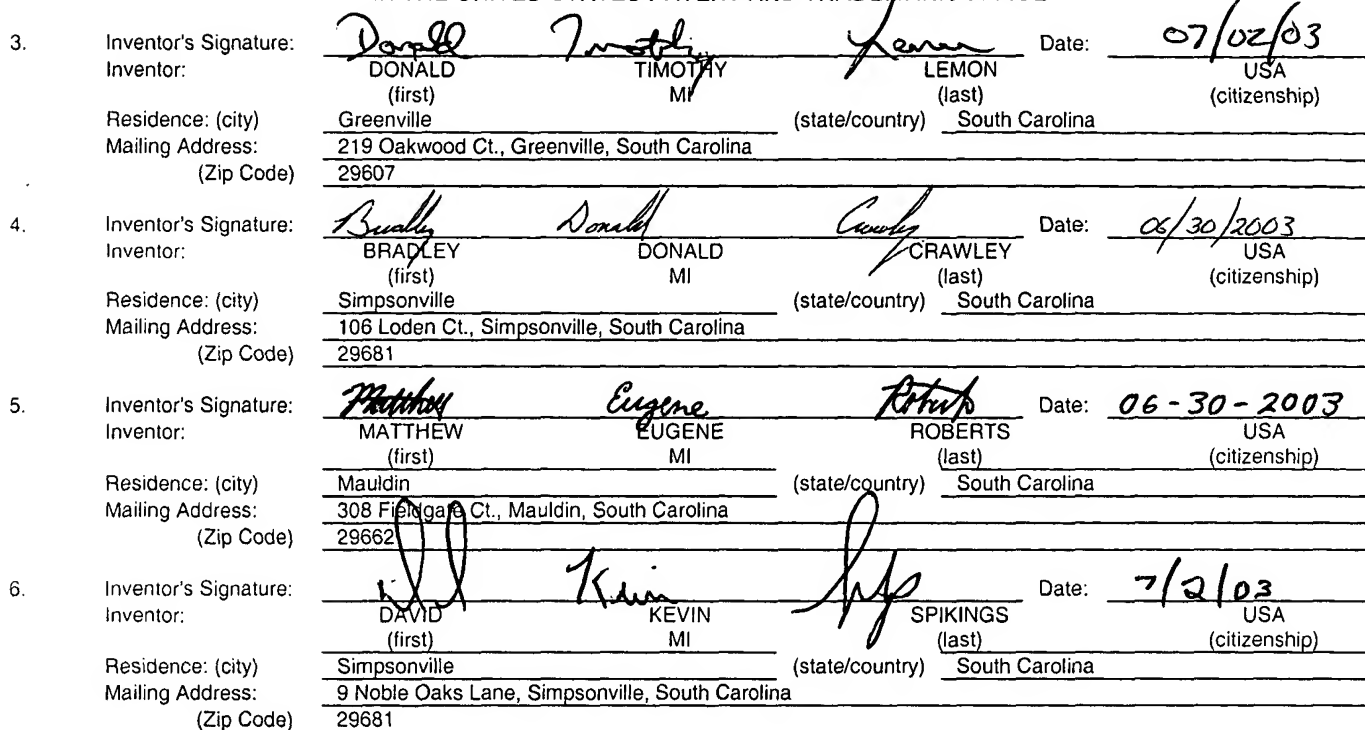 3. Inventor's Signature: Donald Timothy Lemon Date: 07/02/03
Inventor: DONALD TIMOTHY LEMON USA
(first) MI (last) (citizenship)
Residence: (city) Greenville (state/country) South Carolina
Mailing Address: 219 Oakwood Ct., Greenville, South Carolina
(Zip Code) 29607
4. Inventor's Signature: Bradley Donald Crawley Date: 06/30/2003
Inventor: BRADLEY DONALD CRAWLEY USA
(first) MI (last) (citizenship)
Residence: (city) Simpsonville (state/country) South Carolina
Mailing Address: 106 Loden Ct., Simpsonville, South Carolina
(Zip Code) 29681
5. Inventor's Signature: Matthew Eugene Roberts Date: 06-30-2003
Inventor: MATTHEW EUGENE ROBERTS USA
(first) MI (last) (citizenship)
Residence: (city) Mauldin (state/country) South Carolina
Mailing Address: 308 Fieldgate Ct., Mauldin, South Carolina
(Zip Code) 29662
6. Inventor's Signature: Kevin Date: 7/2/03
Inventor: DAVID KEVIN SPIKINGS USA
(first) MI (last) (citizenship)
Residence: (city) Simpsonville (state/country) South Carolina
Mailing Address: 9 Noble Oaks Lane, Simpsonville, South Carolina
(Zip Code) 29681